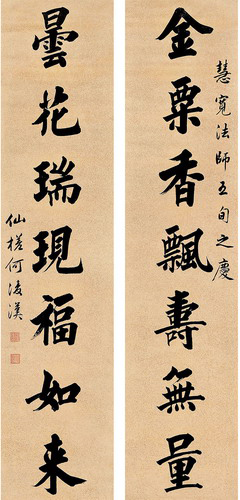 慧寬法師五旬之慶
金粟香飄壽無量
曇花瑞現福如来
仙槎何凌漢